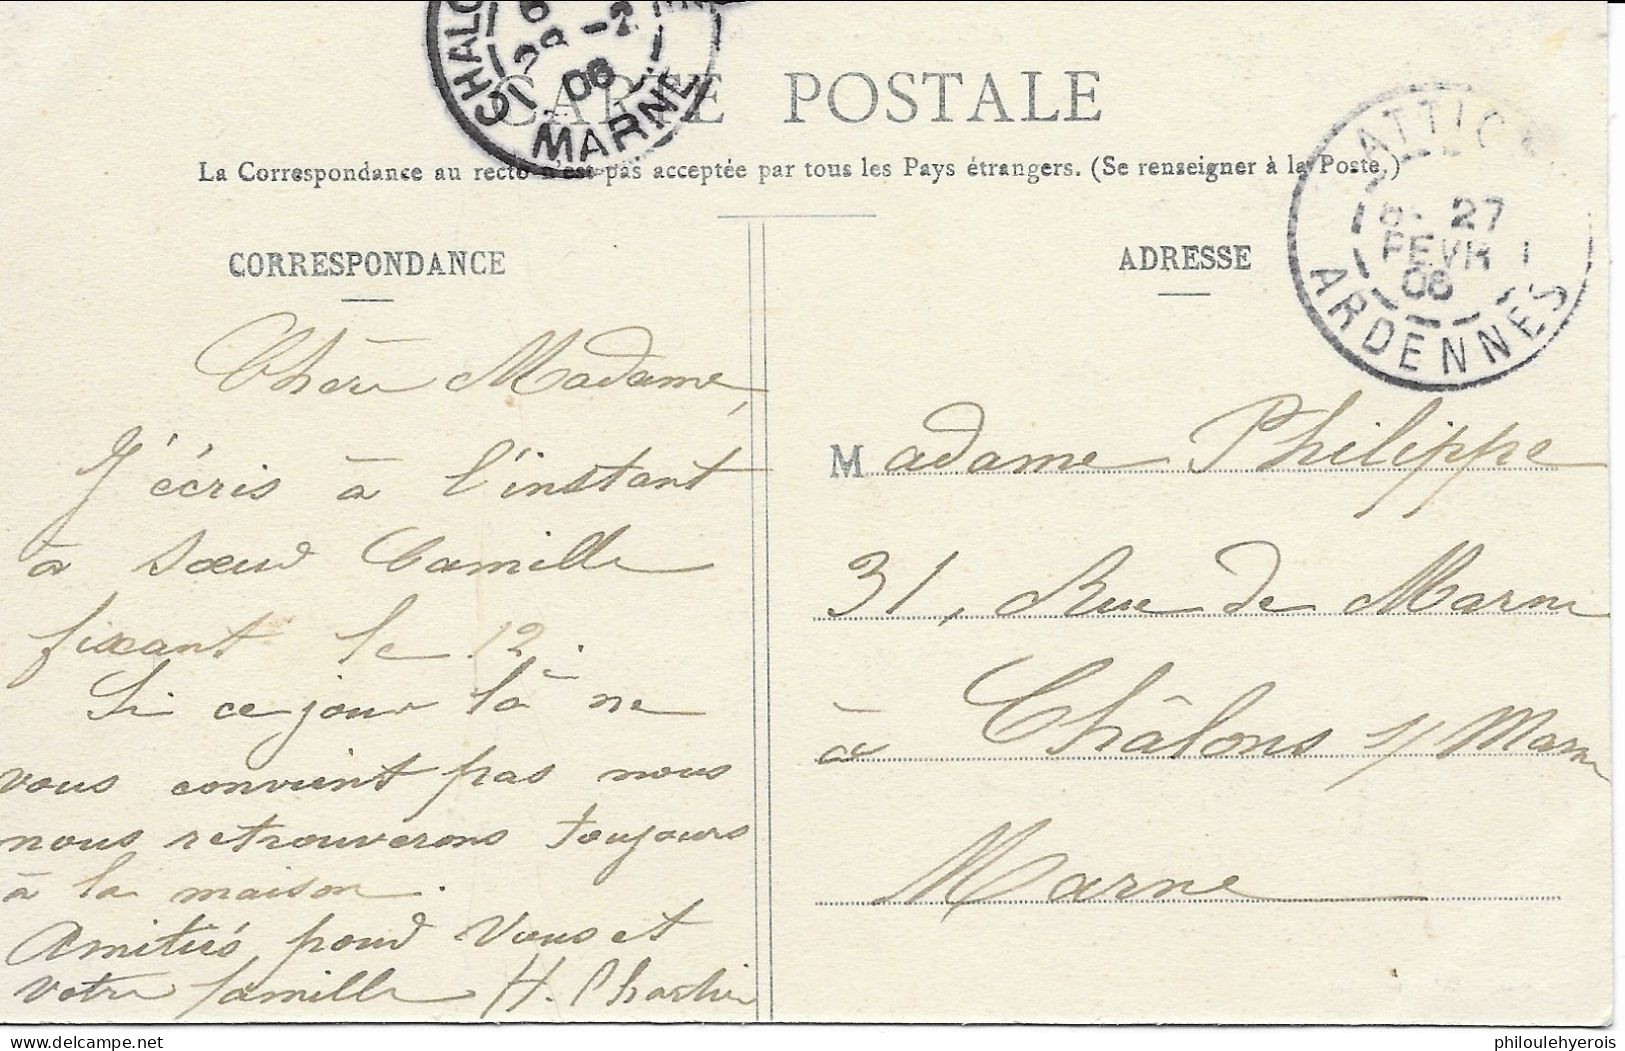 CARTE POSTALE
CHALO
28 -2
06
MARNE
La Correspondance au recto n'est pas acceptée par tous les Pays étrangers. (Se renseigner à la Poste.)
ATTIG
27
FEVR
06
ARDENNES
CORRESPONDANCE
Chère Madame,
J'écris à l'instant
à Sœur Camille
fixant le 12.
Si ce jour là ne
vous convient pas nous
nous retrouverons toujours
à la maison.
Amitiés pour Vous et
votre famille H.
ADRESSE
Madame Philippe
31, Rue de Marne
à Châlons s/ Marne
Marne
philoulehyerois